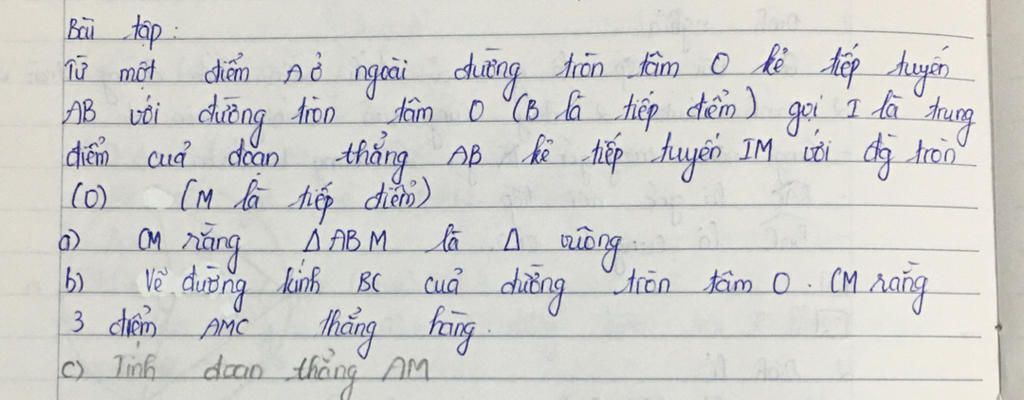 Bài tập :
Từ một điểm A ở ngoài đường tròn tâm O kẻ tiếp tuyến
AB với đường tròn tâm O (B là tiếp điểm) gọi I là trung
điểm cuả đoạn thẳng AB kẻ tiếp tuyến IM với đg tròn
(O) (M là tiếp điểm)
a) CM rằng Δ ABM là Δ vuông
b) Vẽ đường kính BC cuả đường tròn tâm O. CM rằng
3 điểm AMC thẳng hàng.
c) Tính đoạn thẳng AM